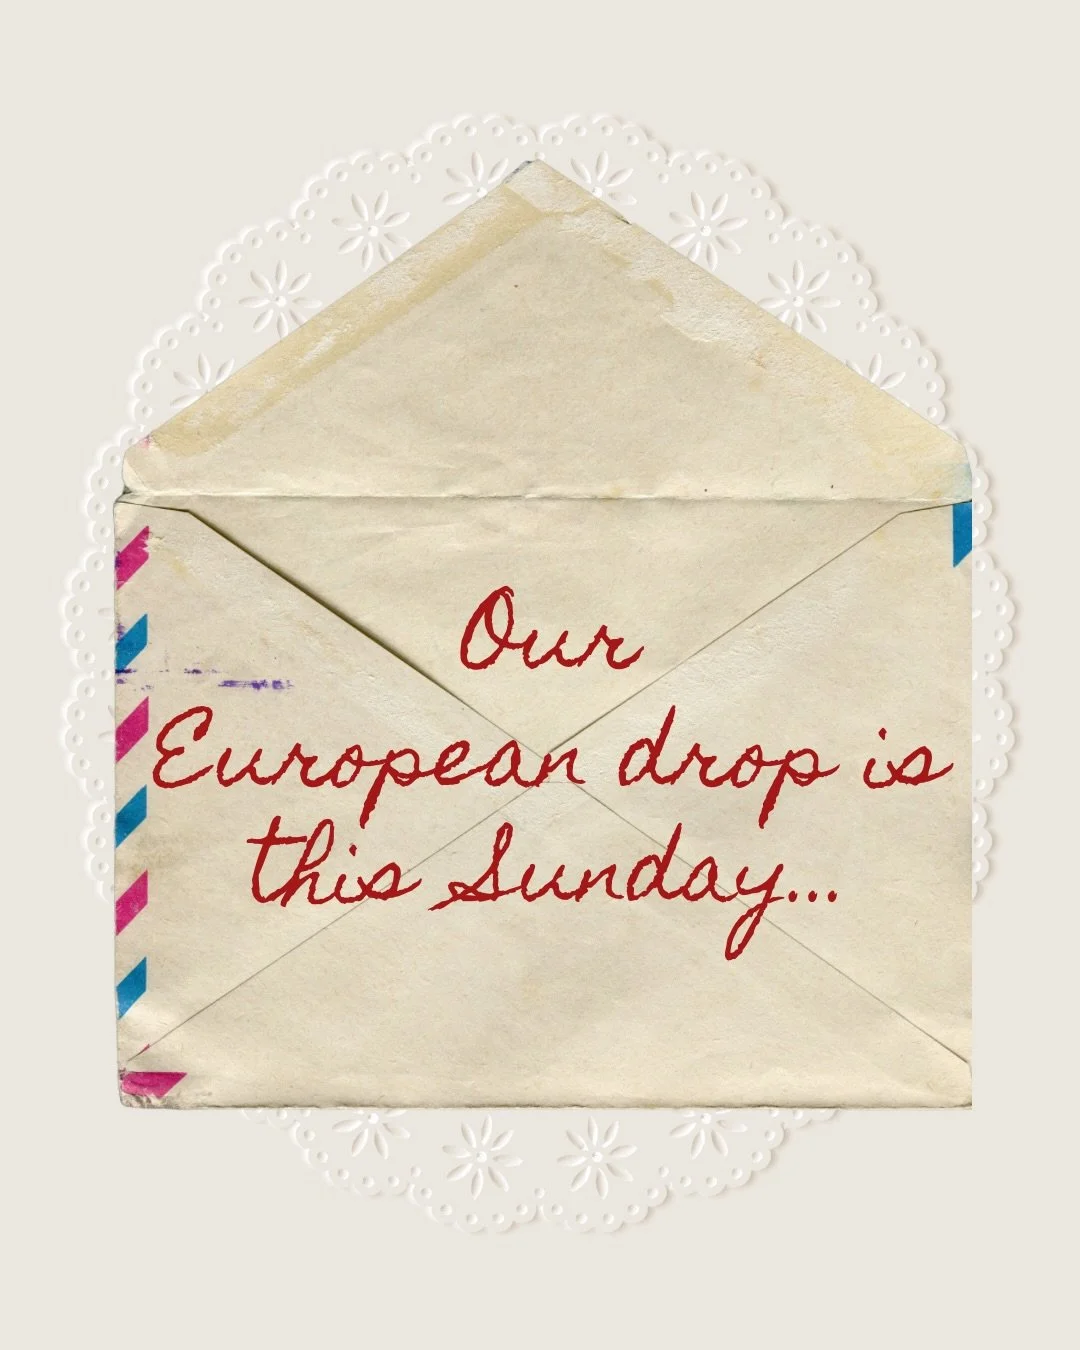 Our
European drop is
this Sunday...